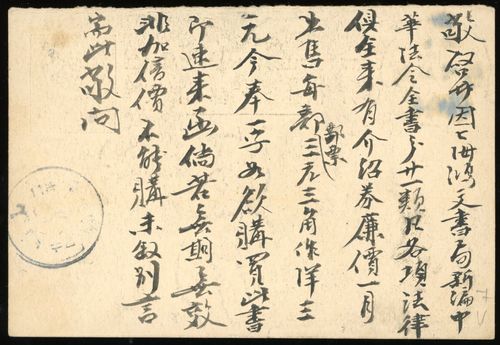 敬啓者因上海鴻文書局新編中
華法令全書分廿一類凡各項法律
俱全來有介紹券廉價一月
出售每部三元三角作洋三
部票
元今奉一字如欲購買此書
即速來函倘若無期無效
非加倍價不能購未敘別言
耑此敬問